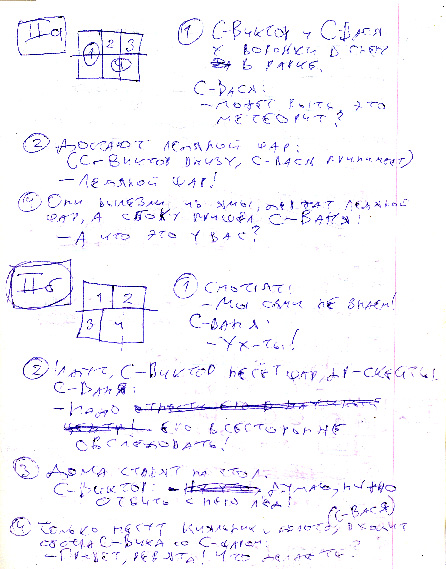 IIа
1 2 3
4
① С-Виктор и С-Ваня
у воронки в снегу
в парке.
С-Вася:
- Может быть, это
метеорит?
② Достают ледяной шар:
(С-Виктор внизу, С-Вася принимает)
- Ледяной шар!
Они вылезли из ямы, держат ледяной
шар, а сбоку пришёл С-Ваня:
- А что это у вас?
IIб
1 2
3 4
① Смотрят:
- Мы сами не знаем!
С-Ваня:
- Ух-ты!
② Идут, С-Виктор несёт шар,
С-Ваня:
- Надо
его всесторонне
обследовать!
③ Дома ставят на стол.
С-Виктор: - Думаю, нужно
отбить с него лёд!
(С-Вася)
④ Только несут
- Привет, ребята! Что делаете?